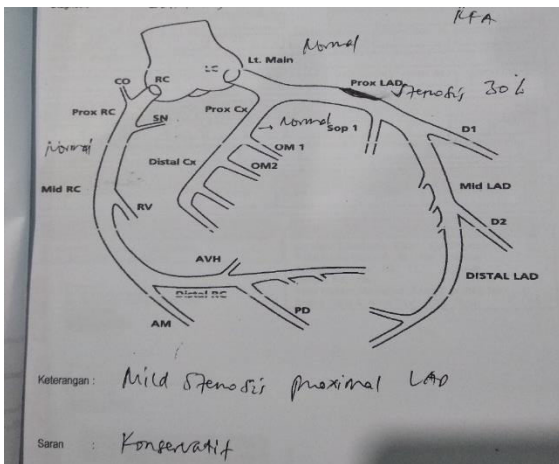 RFA
Normal
Lt. Main
CO
RC
LC
Prox LAD
Stenosis 30%
Prox RC
Prox Cx
SN
Normal
Sop 1
D1
Normal
OM 1
Distal Cx
OM2
Mid RC
Mid LAD
RV
D2
AVH
DISTAL LAD
Distal RC
AM
PD
Keterangan : Mild Stenosis proximal LAD
Saran : Konservatif